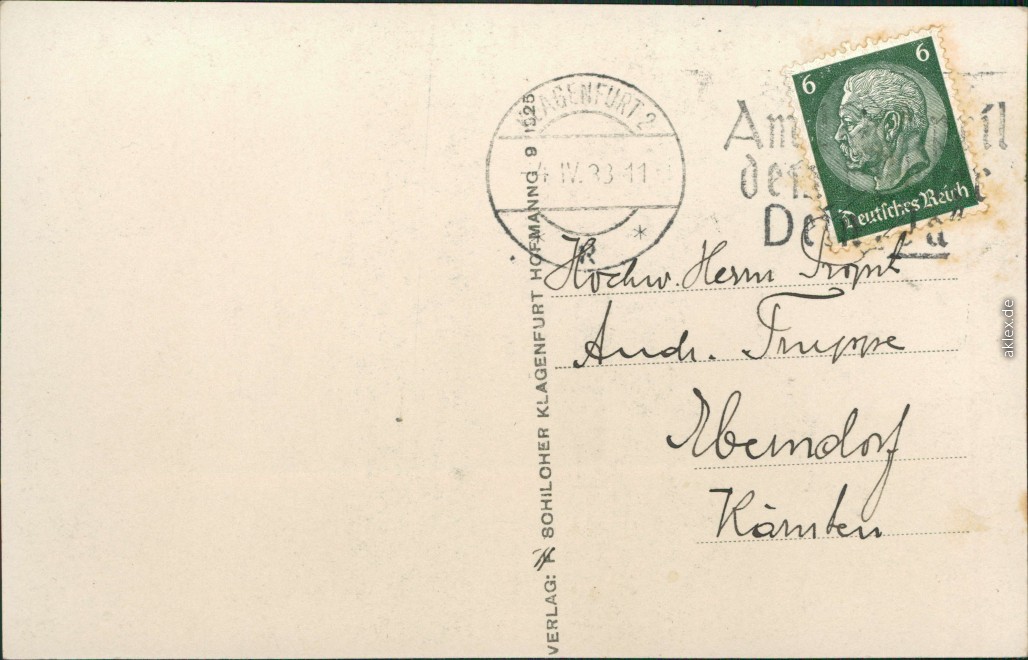 KLAGENFURT 2
4. IV. 38 - 11
*
Am
den
6
6
Deutsches Reich
Hochw. Herrn Propst
Andr. Truppe
Eberndorf
Kärnten
VERLAG: F. SCHILCHER KLAGENFURT HOFMANNG 9 1925
aklex.de